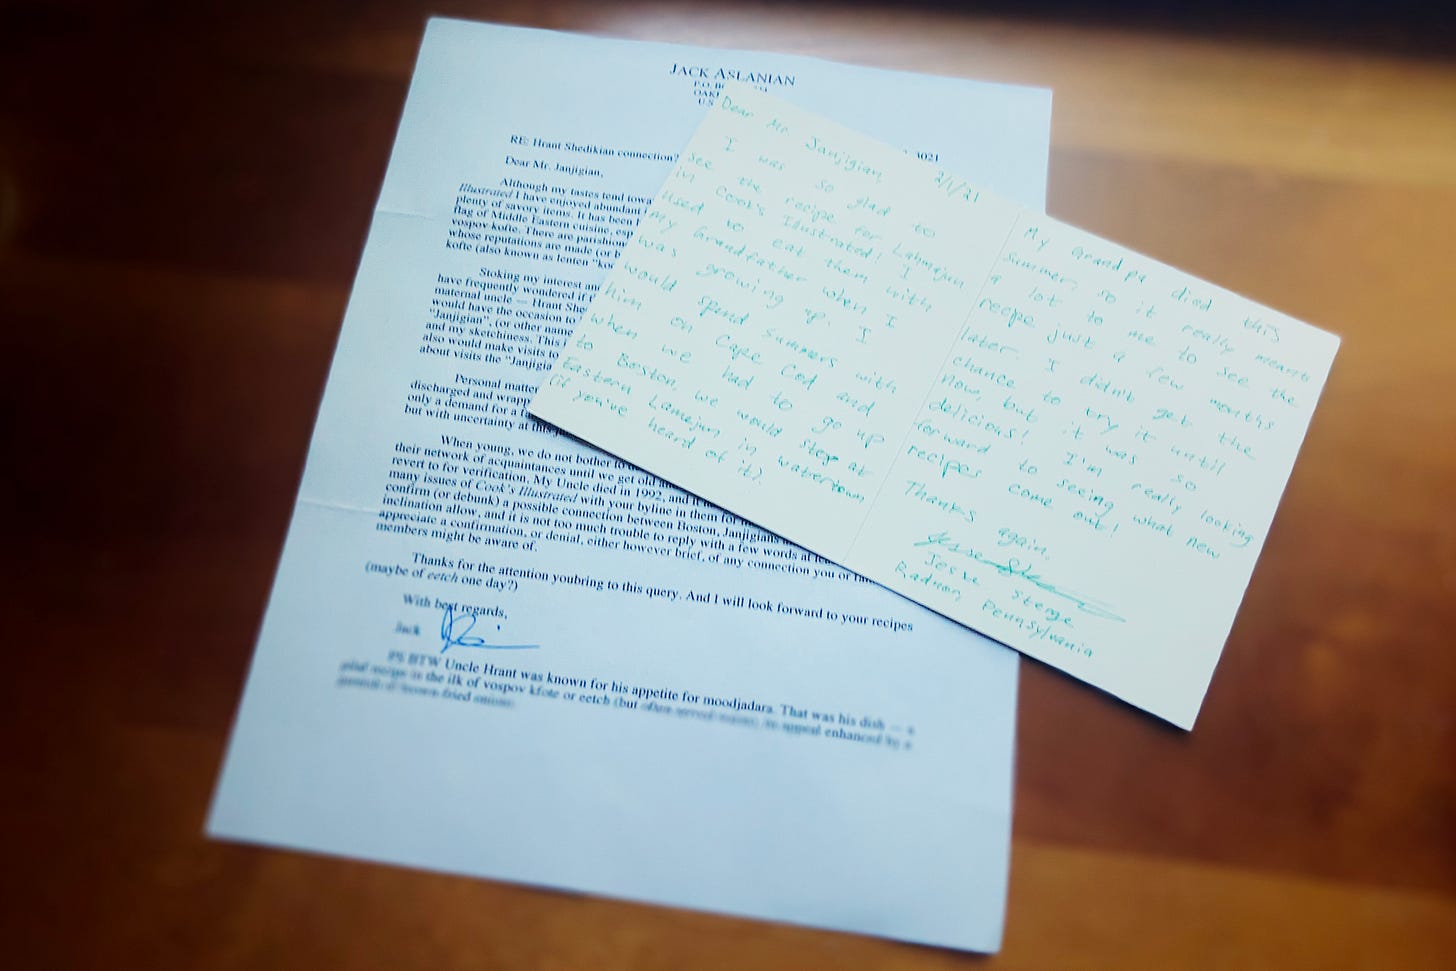 JACK ASLANIAN
P.O.
U.S
2021
RE: Hrant Shedikian connection?
Dear Mr. Janjigian,
Although my tastes tend
Illustrated I have enjoyed abundant
plenty of savory items. It has been
flag of Middle Eastern cuisine, esp
vospov kofte. There are parishion
whose reputations are made (or b
kofte (also known as lenten "ko
Stoking my interest an
have frequently wondered if
maternal uncle — Hrant She
would have the occasion to
"Janjigian", (or other name
and my sketchiness. This
also would make visits to
about visits the "Janjigia
Personal matter
discharged and wrapp
only a demand for a
but with uncertainty at this
When young, we do not bother to
their network of acquaintances until we get old
revert to for verification. My Uncle died in 1992, and
many issues of Cook's Illustrated with your byline in them for
confirm (or debunk) a possible connection between Boston, Janjigians
inclination allow, and it is not too much trouble to reply with a few words at
appreciate a confirmation, or denial, either however brief, of any connection you or
members might be aware of.
Thanks for the attention youbring to this query. And I will look forward to your recipes
(maybe of eetch one day?)
With best regards,
Jack
PS BTW Uncle Hrant was known for his appetite for moodjadara. That was his dish — a
in the ilk of vospov kfote or eetch (but often served warm), its appeal enhanced by a
fried onions
Dear Mr. Janjigian, 2/1/21
I was so glad to
see the recipe for Lahmajun
in Cook's Illustrated! I
used to eat them with
my Grandfather when I
was growing up. I
would spend summers with
him on Cape Cod and
when we had to go up
to Boston, we would stop at
Eastern Lamejun in Watertown
(if you've heard of it).
My Grandpa died this
summer, so it really meant
a lot to me to see the
recipe just a few months
later. I didn't get the
chance to try it until
now, but it was so
delicious! I'm really looking
forward to seeing what new
recipes come out!
Thanks again,
Jesse Sterge
Radnor, Pennsylvania